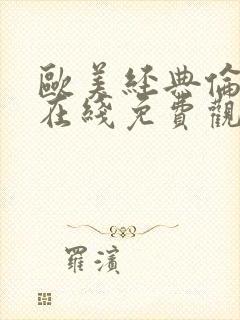 歐美經典倫
在綫免費觀
羅濱